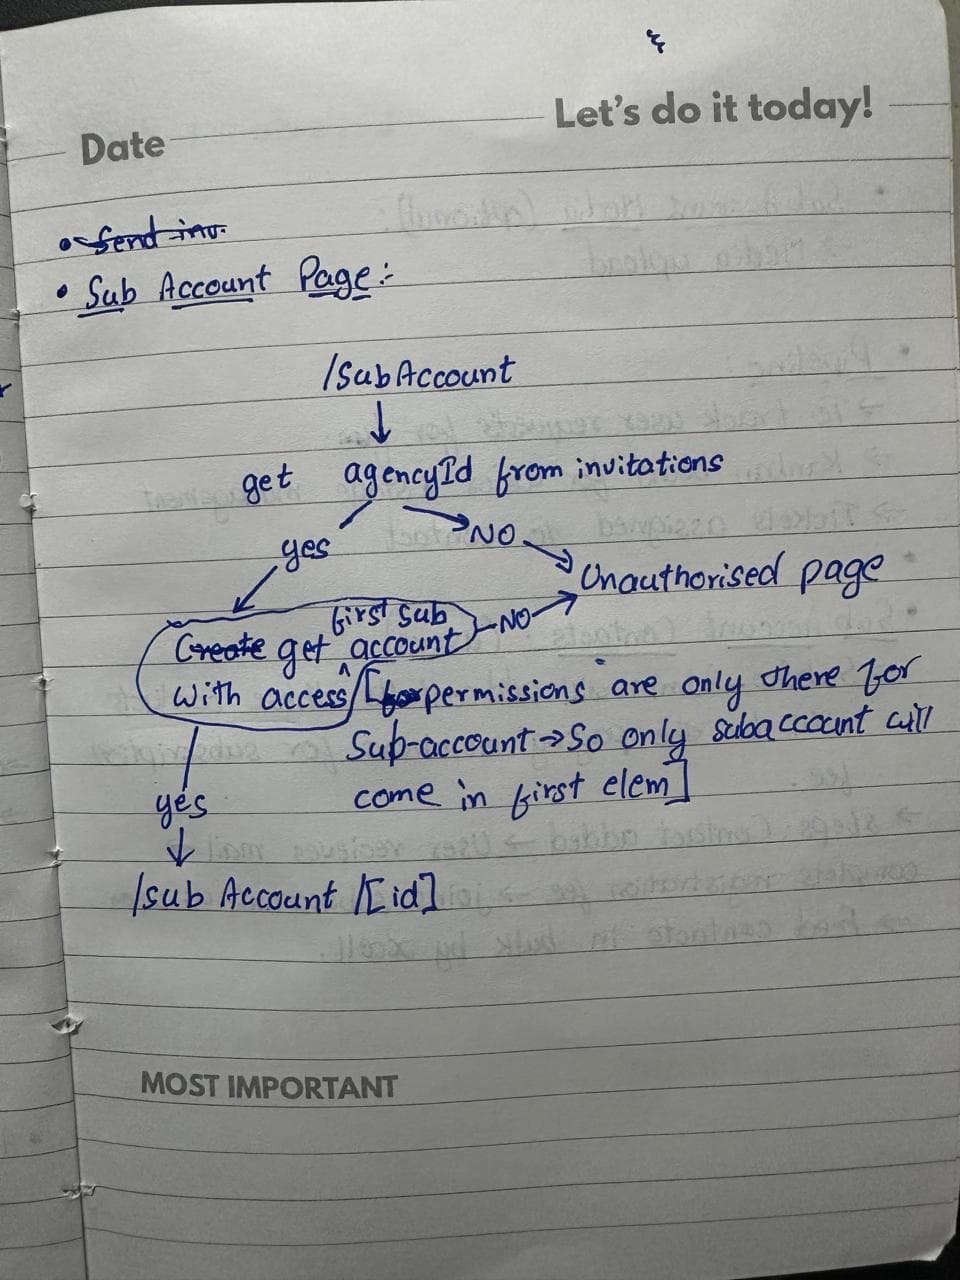 Let's do it today!
Date
• Send inv.
• Sub Account Page :-
/SubAccount
get agencyId from invitations
yes NO
Unauthorised page
first sub NO
Create get account
with access [for permissions are only there for
Sub-account → So only subaccount will
come in first elem]
yes
/sub Account /[id]
MOST IMPORTANT